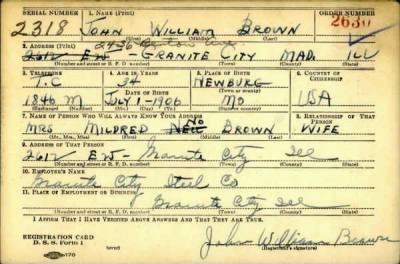 SERIAL NUMBER 1. NAME (Print) ORDER NUMBER
2318 JOHN WILLIAM BROWN 2630
(First) (Middle) (Last)
2. ADDRESS (Print) 2436 Ave
2612 EW GRANITE CITY MAD. ILL
(Number and street or R. F. D. number) (Town) (County) (State)
3. TELEPHONE 4. AGE IN YEARS 5. PLACE OF BIRTH 6. COUNTRY OF CITIZENSHIP
T.C 34 NEWBURG
DATE OF BIRTH (Town or county)
1846 M JULY-1-1906 MO USA
(Exchange) (Number) (Mo.) (Day) (Yr.) (State or country)
7. NAME OF PERSON WHO WILL ALWAYS KNOW YOUR ADDRESS 8. RELATIONSHIP OF THAT PERSON
MRS MILDRED NO BROWN WIFE
(Mr., Mrs., Miss) (First) (Middle) (Last)
9. ADDRESS OF THAT PERSON
2612 EW Granite City Ill
(Number and street or R. F. D. number) (Town) (County) (State)
10. EMPLOYER'S NAME
Granite City Steel Co
11. PLACE OF EMPLOYMENT OR BUSINESS
Granite City Ill
(Number and street or R. F. D. number) (Town) (County) (State)
I AFFIRM THAT I HAVE VERIFIED ABOVE ANSWERS AND THAT THEY ARE TRUE.
REGISTRATION CARD
D. S. S. Form 1 John William Brown
(Registrant's signature)